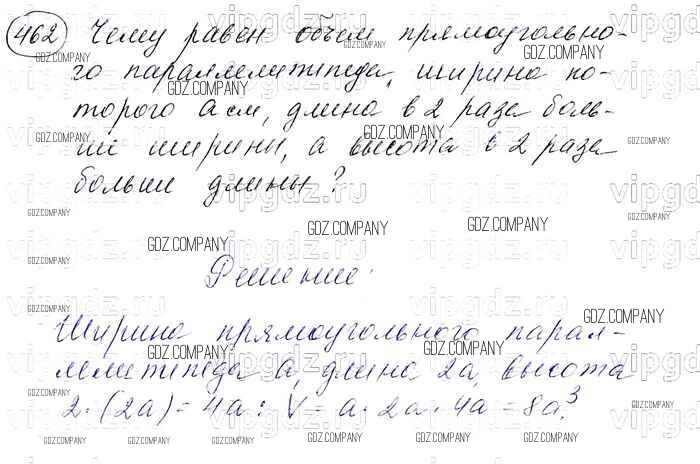 462 Чему равен объем прямоугольно-
го параллелепипеда, ширина ко-
торого а см, длина в 2 раза боль-
ше ширины, а высота в 2 раза
больше длины?
Решение:
Ширина прямоугольного парал-
лелепипеда а, длина 2а, высота
2·(2а)=4а: V=а·2а·4а=8а³.
GDZ.COMPANY
vipgdz.ru